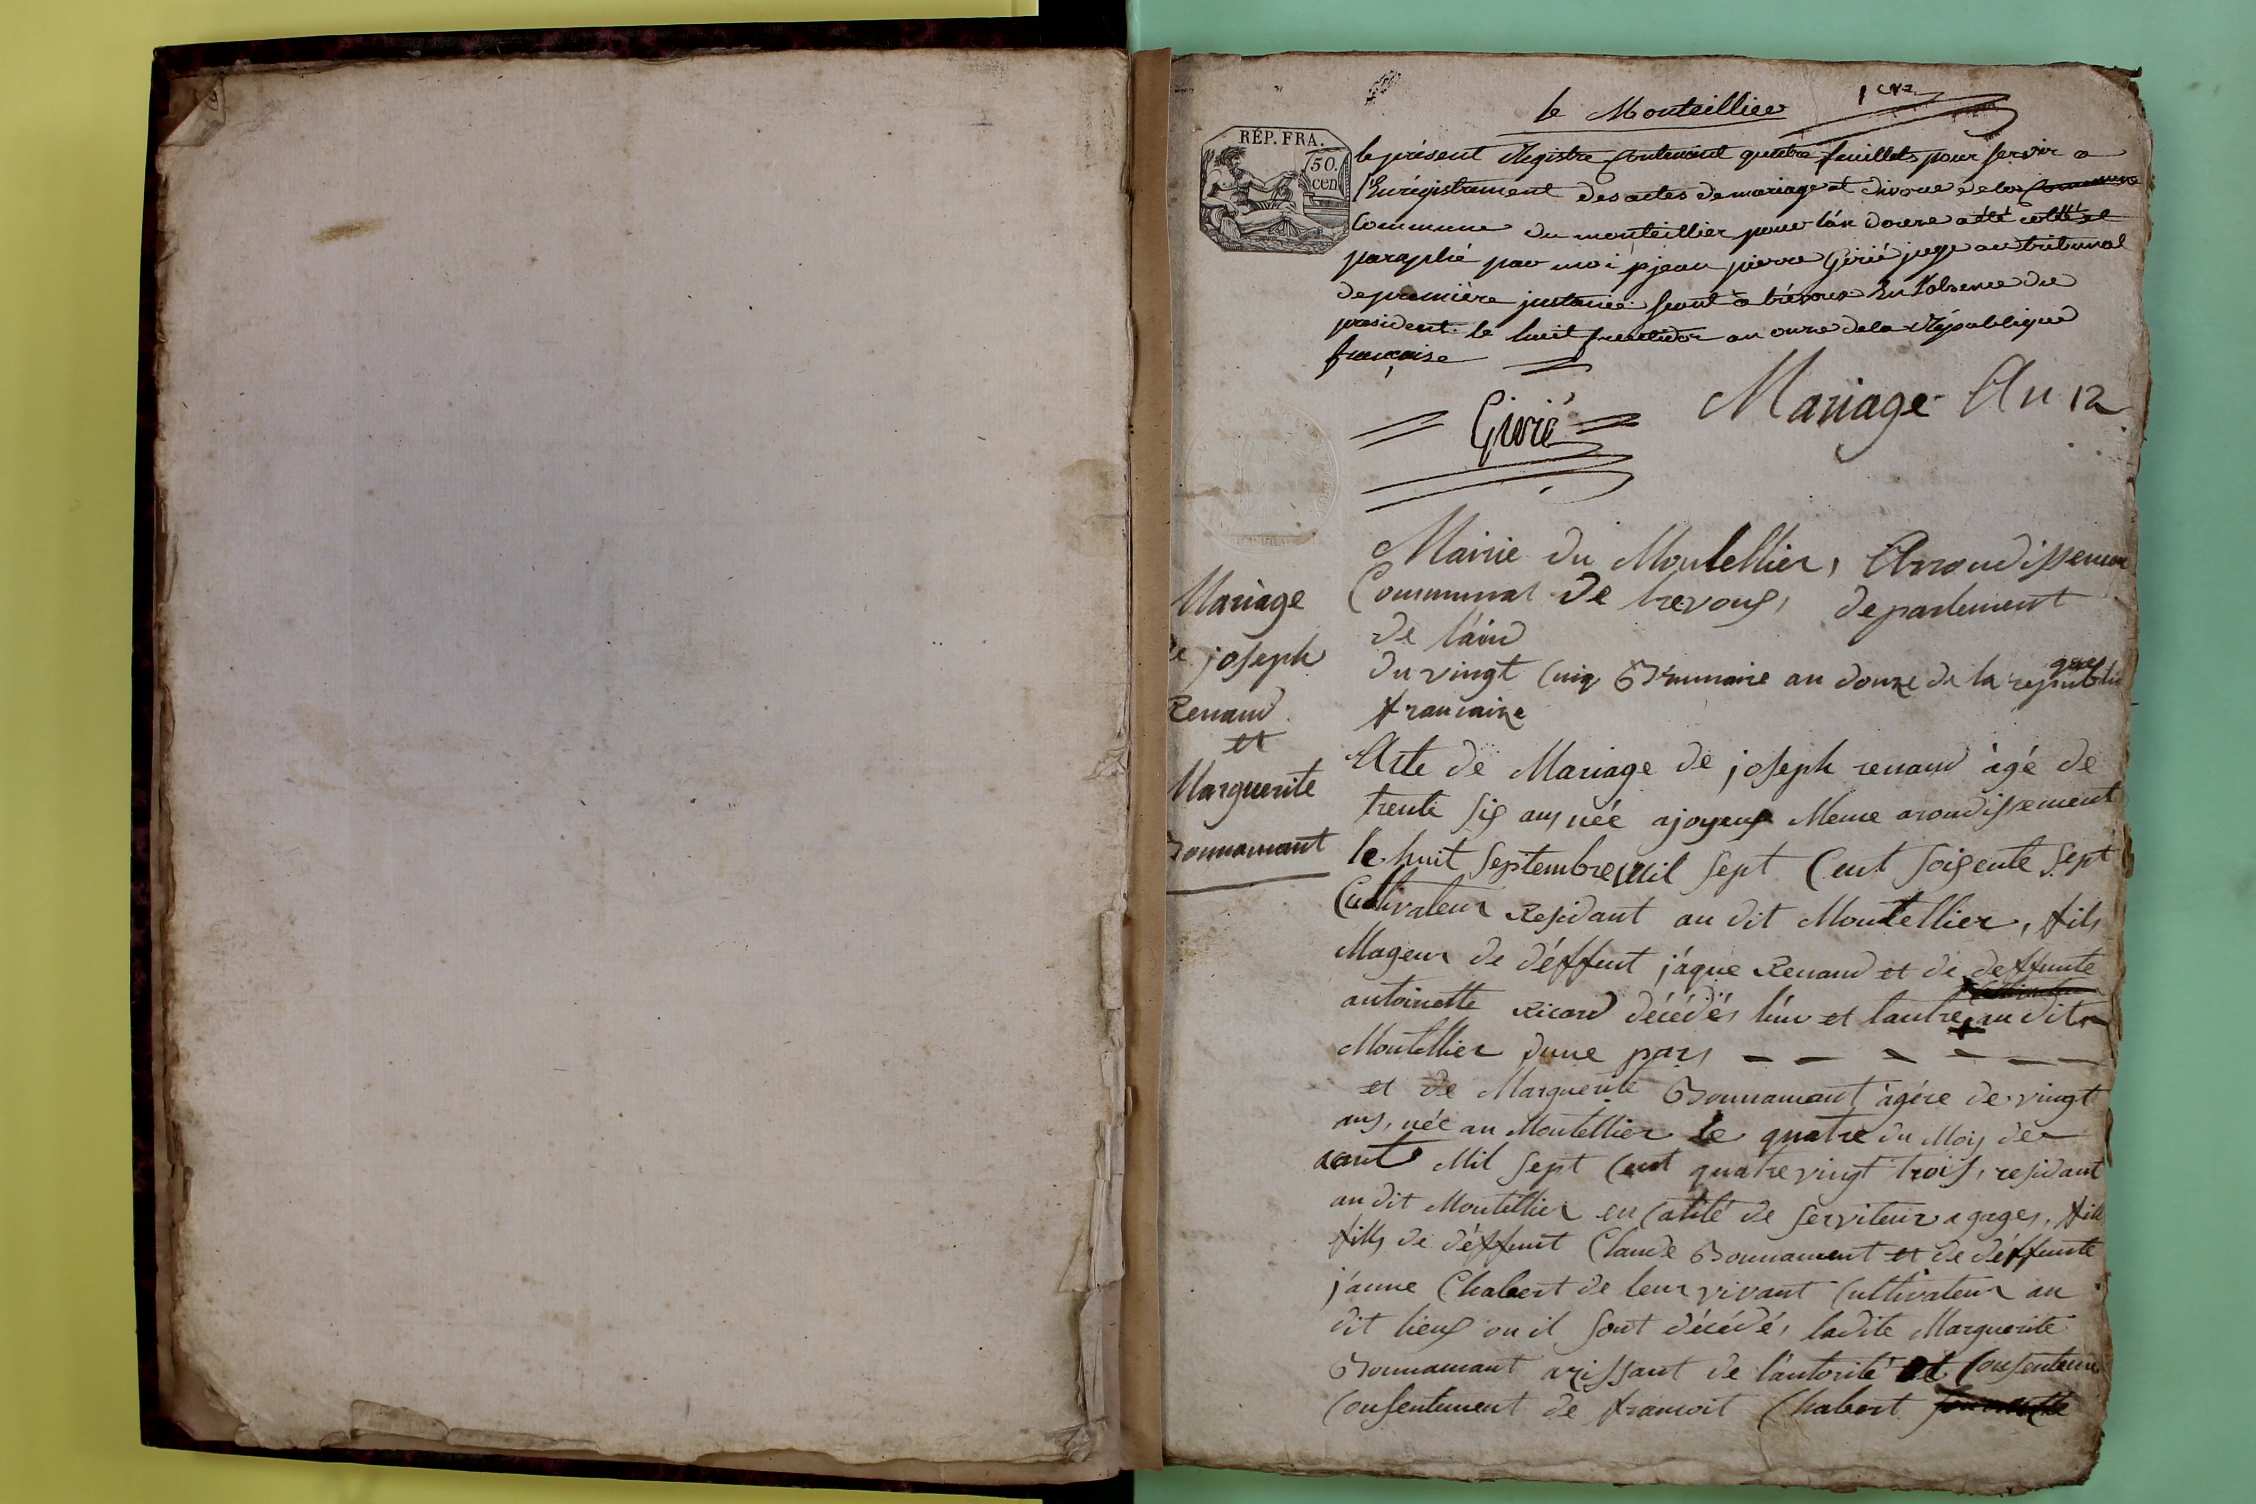 le Monteillier
RÉP. FRA.
50.
cen
le présent Régistre Contenant quatre feuillets pour servir a
l'Enrégistrement des actes de mariage et divorce de la Commune
Commune du monteillier pour l'an douze a été cotté et
paraphé par moi jean pierre Girié juge au tribunal
de premiére instance séant à trévoux En l'absence du
president le huit fructidor an onze de la République
française
Girié
Mariage An 12
Mairie du Montellier, Arrondissemen
Communal de trevoux, departement
de l'ain
du vingt Cinq Brumaire an douze de la republique
francaize
Mariage
de joseph
Renaud
et
Marguerite
Bonnamant
Acte de Mariage de joseph renaud àgé de
trente six ans née ajoyeux Meme arondissement
le huit Septembre mil Sept Cent Soixente Sept
Cultivateur Residant au dit Montellier, fils
Mageur de déffunt jáque Renaud et de deffunte
antoinette Ricard décédés l'un et lautre au dit
Montellier dune pars
et de Marguerite Bonnamant àgée de vingt
ans, née au Montellier le quatre du Mois de
aout Mil Sept Cent quatre vingt trois, residant
au dit Montellier en Calité de Serviteur a gages, fill
fills de déffunt Claude Bonnament et de déffunte
jánne Chabert de leur vivant Cultivateur au
dit lieux ou il Sont décédé, ladite Marguerite
Bonnamant agissant de l'autorité et Consenteme
Consentement de francoit Chabert